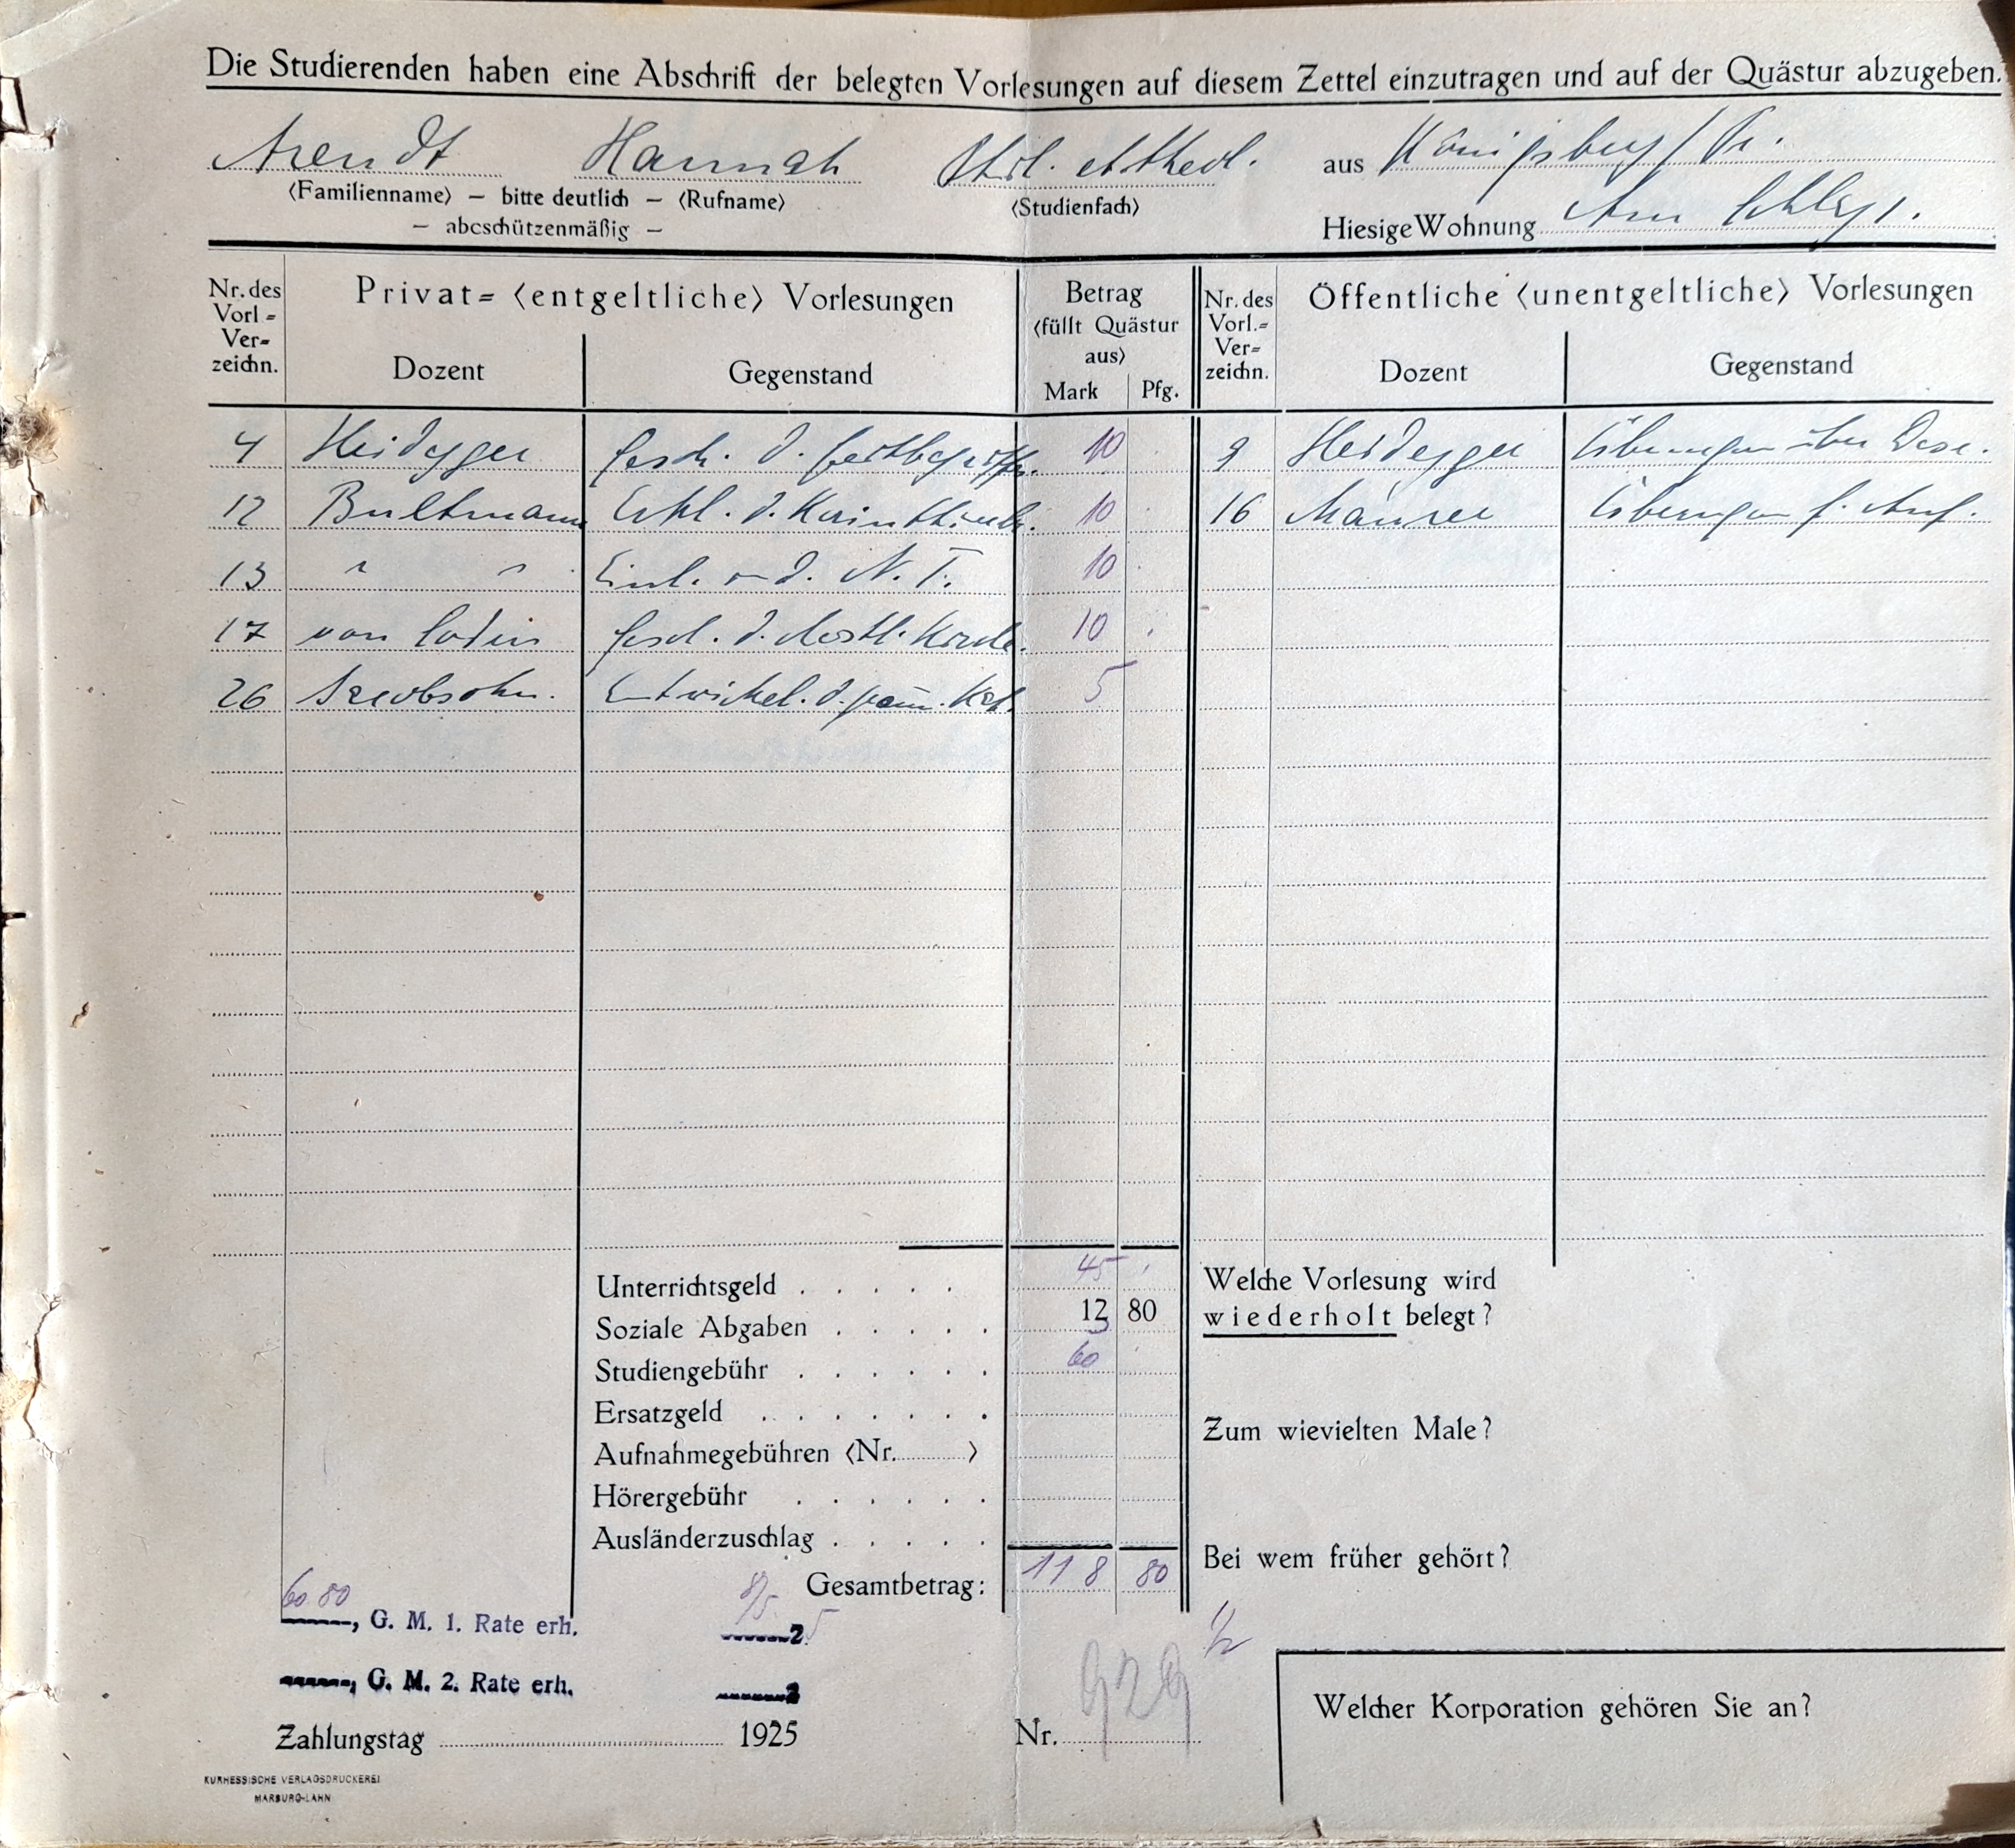 Die Studierenden haben eine Abschrift der belegten Vorlesungen auf diesem Zettel einzutragen und auf der Quästur abzugeben.
Arendt Hannah Phil. et theol. aus Königsberg / Pr.
(Familienname) — bitte deutlich — (Rufname) (Studienfach)
— abcschützenmäßig — Hiesige Wohnung Am
Nr. des Vorl= Ver= zeichn.
Privat= (entgeltliche) Vorlesungen
Dozent Gegenstand
Betrag
(füllt Quästur
aus)
Mark Pfg.
Nr. des Vorl.= Ver= zeichn.
Öffentliche (unentgeltliche) Vorlesungen
Dozent Gegenstand
4 Heidegger Gesch. d. Zeitbegriffs. 10 9 Heidegger Übungen über Desc.
12 Bultmann Erkl. d. Korintherbr. 10 16 Maurer Übungen f. Anf.
13 " " Einl. i. d. N. T. 10
17 von Soden Gesch. d. Kirche. 10
26 Jacobsohn. Entwickel. d. 5
Unterrichtsgeld . . . . . 45
Soziale Abgaben . . . . . 13 80
Studiengebühr . . . . . . 60
Ersatzgeld . . . . . . .
Aufnahmegebühren (Nr. )
Hörergebühr . . . . . .
Ausländerzuschlag . . . . .
Gesamtbetrag: 118 80
Welche Vorlesung wird
wiederholt belegt?
Zum wievielten Male?
Bei wem früher gehört?
60 80
, G. M. 1. Rate erh. 8/5. 25
, G. M. 2. Rate erh. 2
Zahlungstag 1925 Nr. 929
1/2
Welcher Korporation gehören Sie an?
KURHESSISCHE VERLAGSDRUCKEREI
MARBURG-LAHN